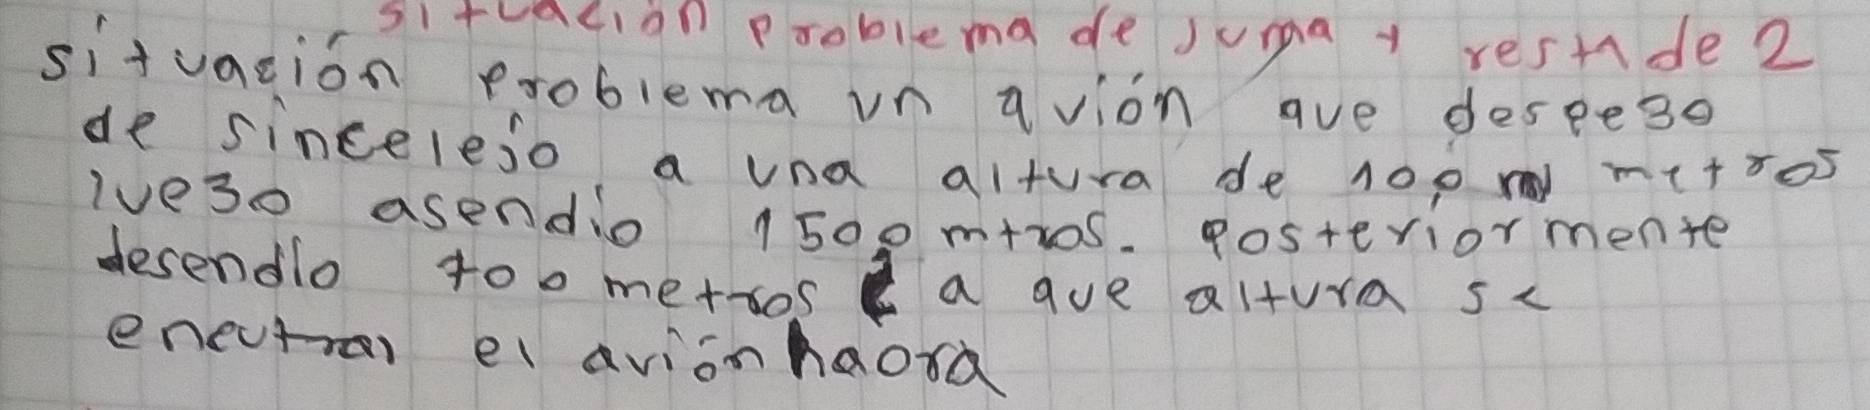 situación problema de suma y resta de 2
situación problema un avión que despego
de sincelejo a una altura de 100 metros
luego asendio 1500 mtros. posteriormente
desendio 700 metros ¿ a que altura se
enecutrar el avión haora